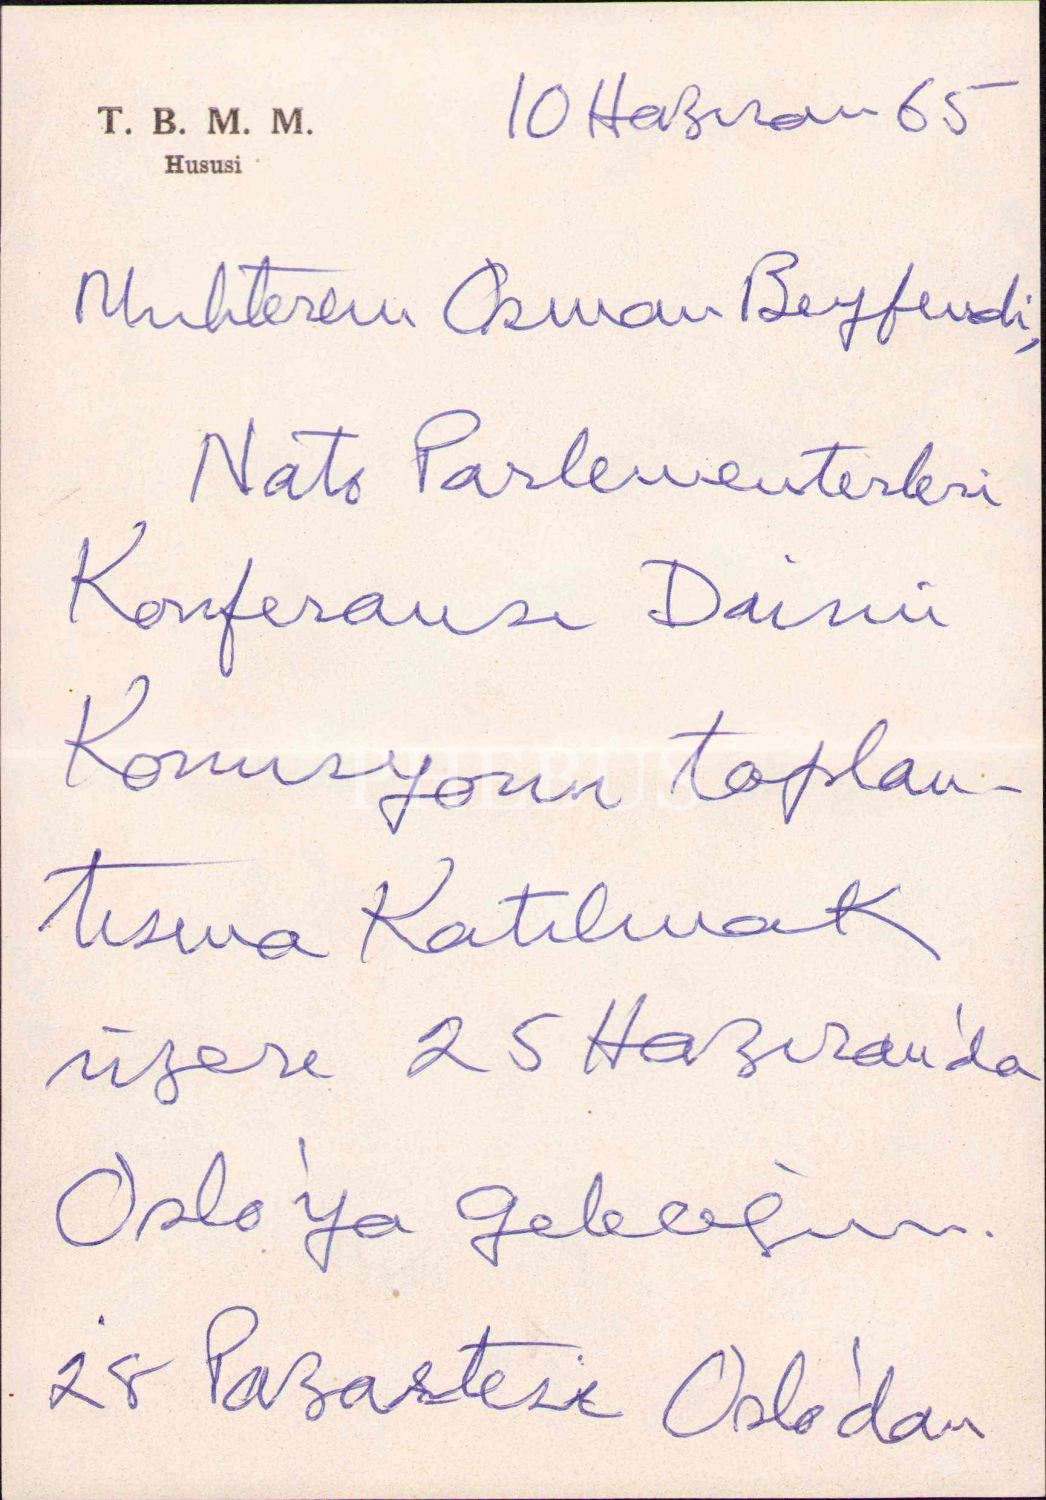 T. B. M. M.
Hususi
10 Haziran 65
Muhterem Osman Beyfendi,
Nato Parlementerleri
Konferansı Daimi
Komisyonu toplan-
tısına Katılmak
üzere 25 Haziran'da
Oslo'ya geleceğim.
28 Pazartesi Oslo'dan
PHEBUS